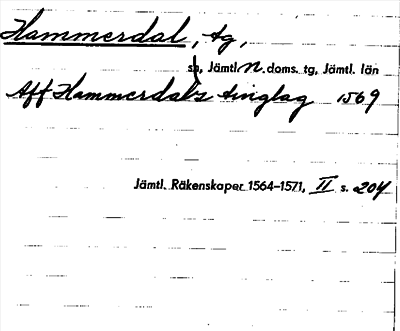 Hammerdal, tg,
sn, Jämtl. N. doms. tg, Jämtl. län
Aff Hammerdals tinglag 1569
Jämtl. Räkenskaper 1564–1571, II s. 204